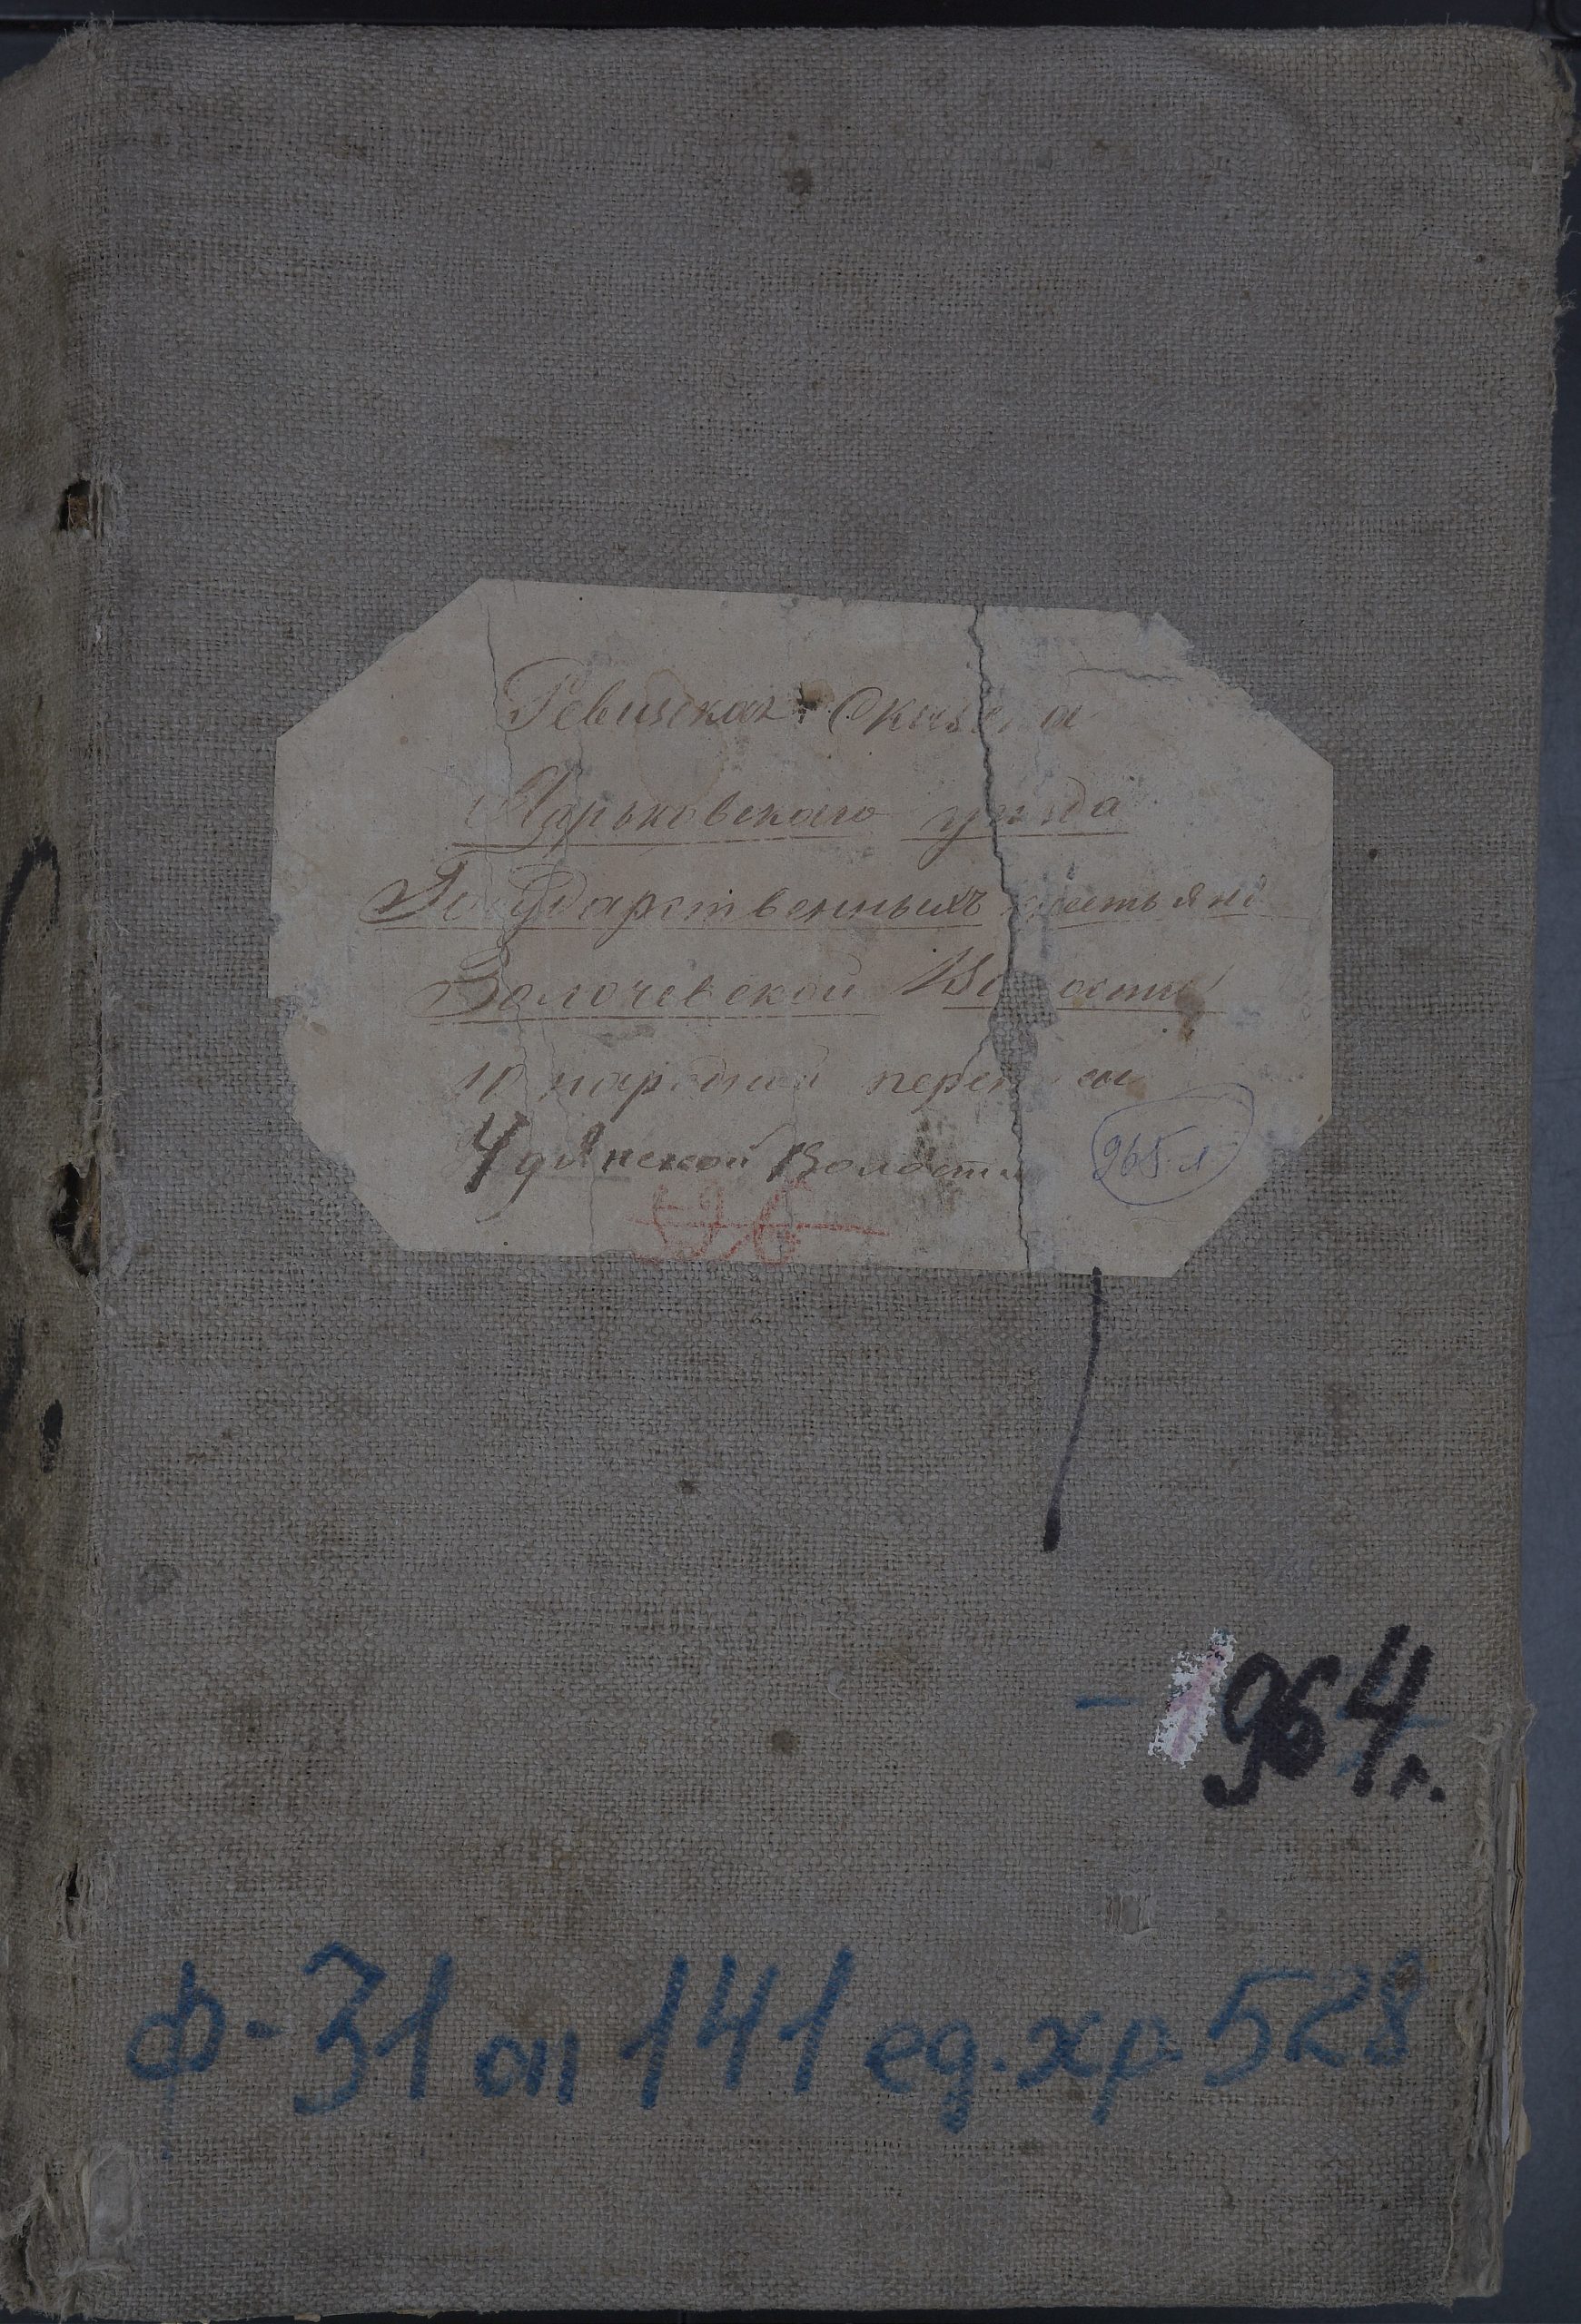 Ревизская Сказка
Харьковского уѣзда
Государственныхъ крестьянъ
Золочевской Волости
10 народной переписи
Удянской Волости
965 л
96
964 л.
ф-31 оп 141 ед.хр 528